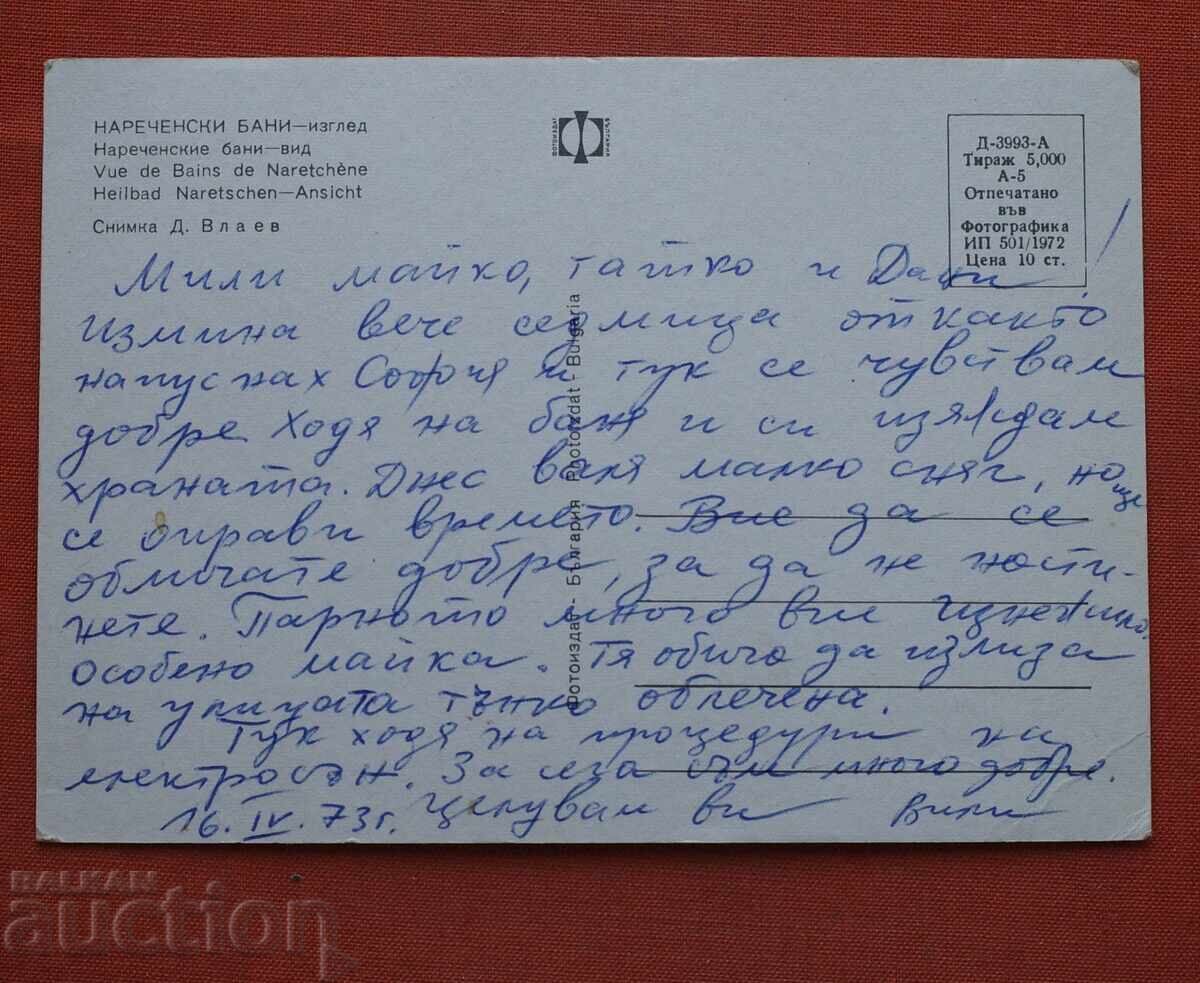 НАРЕЧЕНСКИ БАНИ—изглед
Нареченские бани—вид
Vue de Bains de Naretchène
Heilbad Naretschen—Ansicht
Снимка Д. Влаев
ФОТОИЗДАТ
Д-3993-А
Тираж 5,000
А-5
Отпечатано
във
Фотографика
ИП 501/1972
Цена 10 ст.
Фотоиздат - България Photoizdat - Bulgaria
Мили майко, татко и Дани!
Измина вече седмица откакто
напуснах София и тук се чувствам
добре. Ходя на баня и си изяждам
храната. Днес валя малко сняг, но ще
се оправи времето. Вие да се
обличате добре, за да не насти-
нете. Парното много ви е изнежило,
особено майка. Тя обича да излиза
на улицата тънко облечена.
Тук ходя на процедури на
електросън. За сега съм много добре.
16.IV.73г. Целувам ви Вили
BALKAN
auction